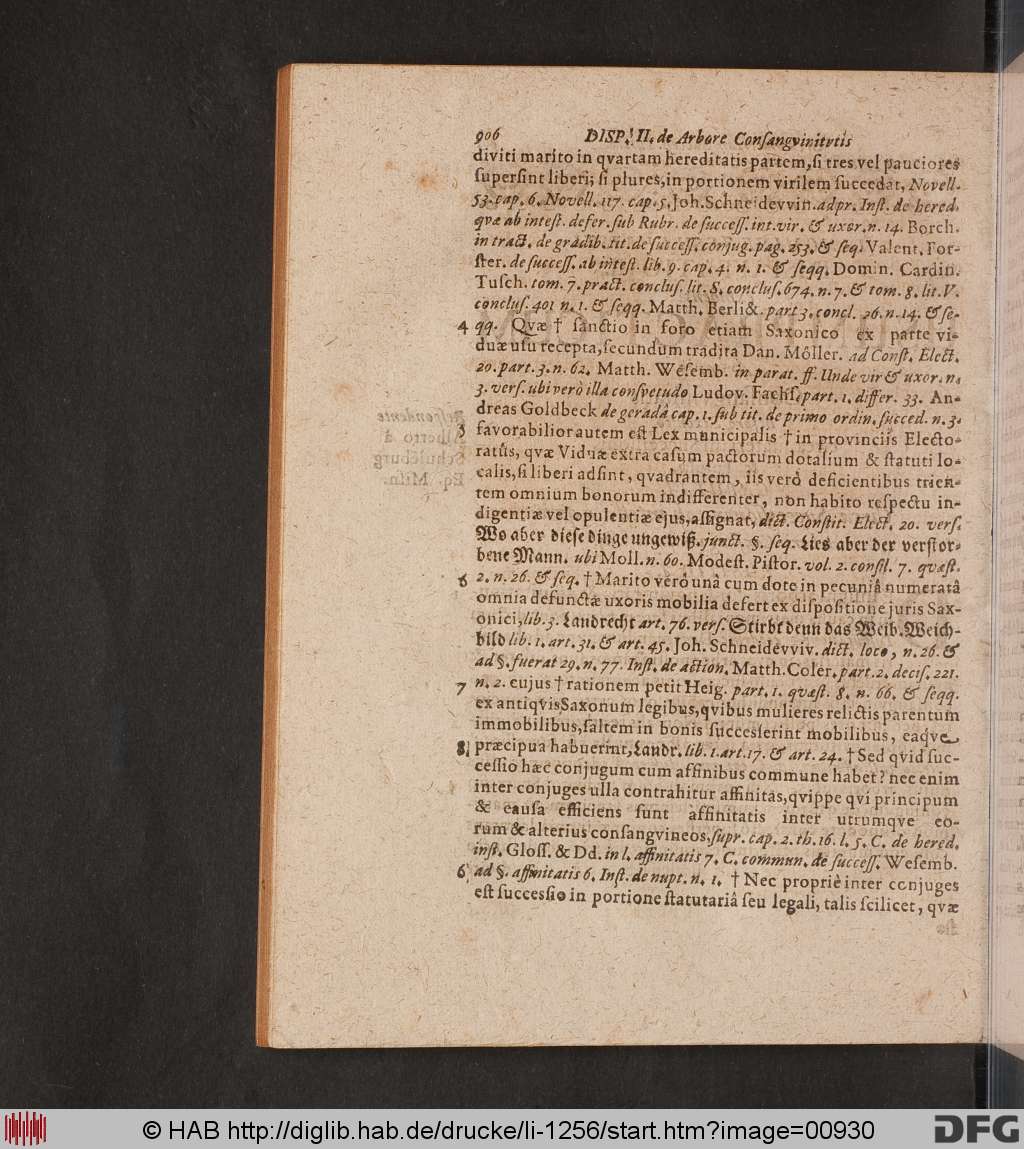 906 DISP. II. de Arbore Consangvinitvtis
diviti marito in qvartam hereditatis partem, si tres vel pauciores
supersint liberi; si plures, in portionem virilem succedat, Novell.
53. cap. 6. Novell. 117. cap. 5. Joh. Schneidevvin. ad pr. Inst. de hered.
qvæ ab intest. defer. sub Rubr. de success. int. vir. & uxor. n. 14. Borch.
in tract. de gradib. tit. de success. conjug. pag. 253. & seq. Valent. For-
ster. de success. ab intest. lib. 9. cap. 4. n. 1. & seqq. Domin. Cardin.
Tusch. tom. 7. pract. conclus. lit. S. conclus. 674. n. 7. & tom. 8. lit. V.
conclus. 401 n. 1. & seqq. Matth. Berli&. part 3. concl. 26. n. 14. & se-
4 qq. Qvæ † sanctio in foro etiam Saxonico ex parte vi-
duæ usu recepta, secundum tradita Dan. Möller. ad Const. Elect.
20. part. 3. n. 62. Matth. Wesemb. in parat. ff. Unde vir & uxor. n.
3. vers. ubi verò illa consvetudo Ludov. Fachs. part. 1. differ. 33. An-
dreas Goldbeck de geradâ cap. 1. sub tit. de primo ordin. succed. n. 3.
5 favorabilior autem est Lex municipalis † in provinciis Electo-
ratûs, qvæ Viduæ extra casum pactorum dotalium & statuti lo-
calis, si liberi adsint, quadrantem, iis verò deficientibus trien-
tem omnium bonorum indifferenter, non habito respectu in-
digentiæ vel opulentiæ ejus, assignat, dict. Constit. Elect. 20. vers.
Wo aber diese dinge ungewiß. junct. §. seq. Lies aber der verstor-
bene Mann. ubi Moll. n. 60. Modest. Pistor. vol. 2. consil. 7. quæst.
6 2. n. 26. & seq. † Marito verò unâ cum dote in pecuniâ numeratâ
omnia defunctæ uxoris mobilia defert ex dispositione juris Sax-
onici, lib. 3. Landrecht art. 76. vers. Stirbt denn das Weib. Weich-
bild lib. 1. art. 31. & art. 45. Joh. Schneidevviv. dict. loco, n. 26. &
ad §. fuerat 29. n. 77. Inst. de action. Matth. Coler. part. 2. decis. 221.
7 n. 2. cujus † rationem petit Heig. part. 1. quæst. 8. n. 66. & seqq.
ex antiqvis Saxonum legibus, qvibus mulieres relictis parentum
immobilibus, saltem in bonis successerint mobilibus, eaqve
8 præcipua habuerint, Landr. lib. 1. art. 17. & art. 24. † Sed qvid suc-
cessio hæc conjugum cum affinibus commune habet? nec enim
inter conjuges ulla contrahitur affinitas, qvippe qvi principum
& causa efficiens sunt affinitatis inter utrumqve eo-
rum & alterius consangvineos, supr. cap. 2. th. 16. l. 5. C. de hered.
inst. Gloss. & Dd. in l. affinitatis 7. C. commun. de success. Wesemb.
6 ad §. affinitatis 6. Inst. de nupt. n. 1. † Nec propriè inter conjuges
est successio in portione statutariâ seu legali, talis scilicet, qvæ
© HAB http://diglib.hab.de/drucke/li-1256/start.htm?image=00930
DFG